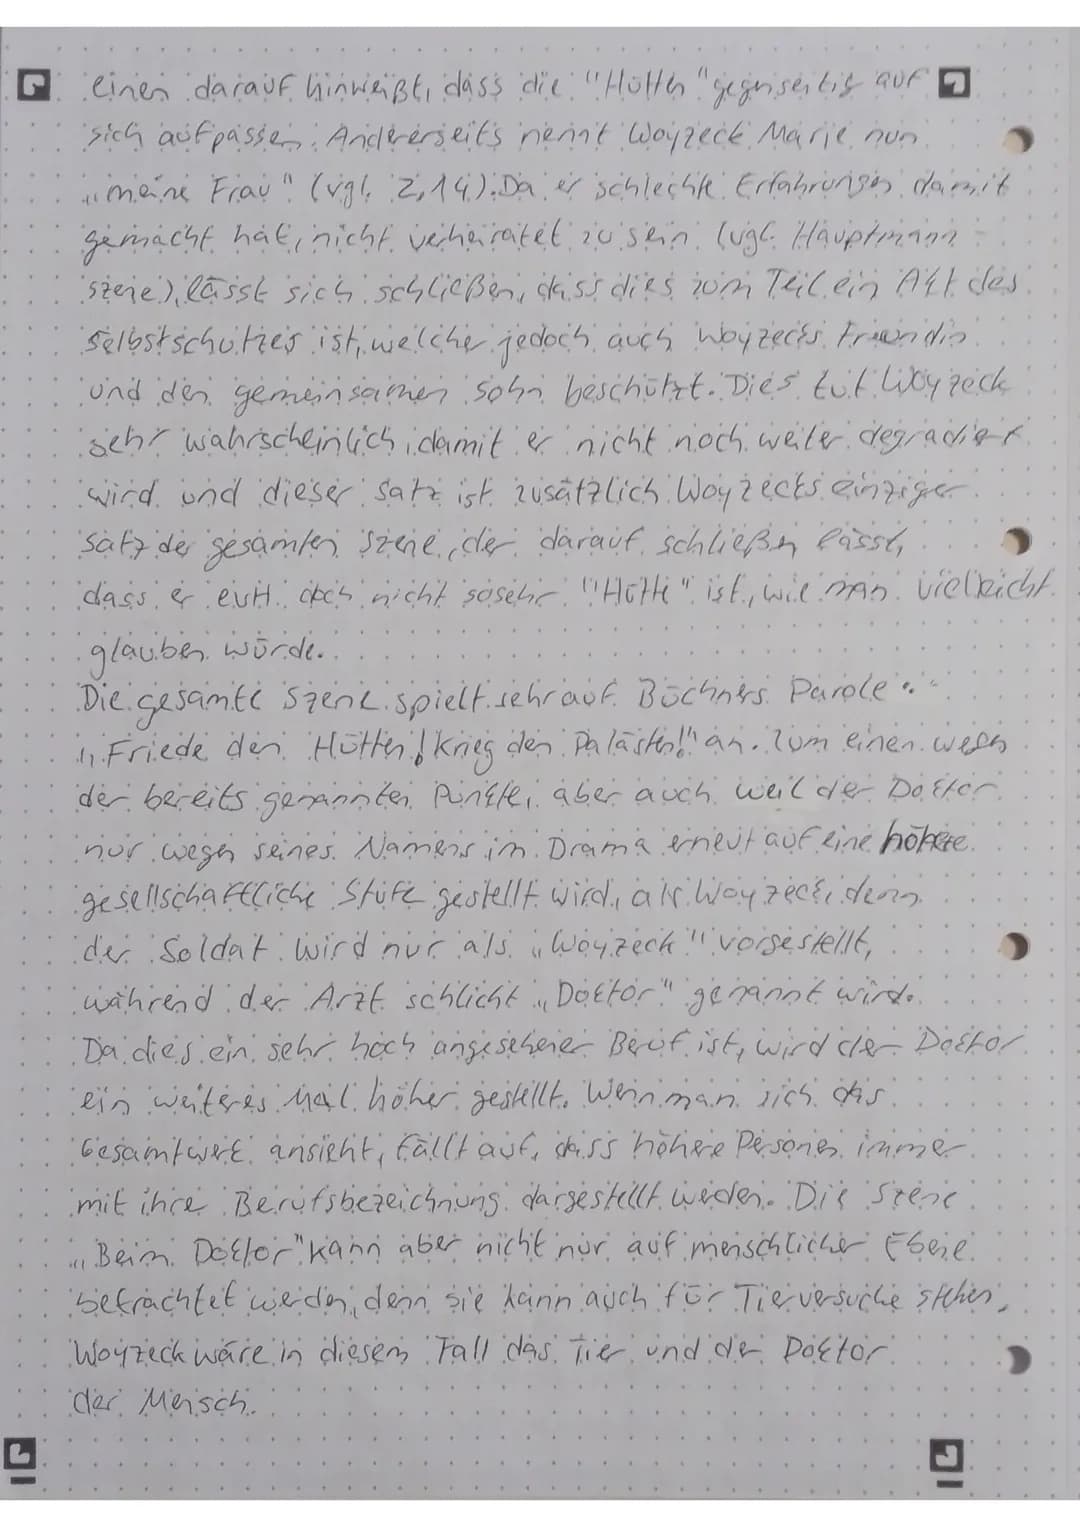 einen darauf hinweißt, dass die "Hütten" gegenseitig auf
sich aufpassen. Andererseits nennt Woyzeck Marie nun
„meine Frau" (vgl. Z, 14). Da er schlechte Erfahrungen damit
gemacht hat, nicht verheiratet zu sein (vgl. Hauptmann
szene), lässt sich schließen, dass dies zum Teil ein Akt des
Selbstschutzes ist, welcher jedoch auch Woyzecks Freundin
und den gemeinsamen Sohn beschützt. Dies tut Woyzeck
sehr wahrscheinlich, damit er nicht noch weiter degradiert
wird und dieser Satz ist zusätzlich Woyzecks einziger
Satz der gesamten Szene, der darauf schließen lässt,
dass er evtl. doch nicht sosehr "Hütte" ist, wie man vielleicht
glauben würde.
Die gesamte Szene spielt sehr auf Büchners Parole
„Friede den Hütten! Krieg den Palästen!" an. Zum einen wegen
der bereits genannten Punkte, aber auch weil der Doktor
nur wegen seines Namens im Drama erneut auf eine höhere
gesellschaftliche Stufe gestellt wird, als Woyzeck, denn
der Soldat wird nur als „Woyzeck" vorgestellt,
während der Arzt schlicht „Doktor" genannt wird.
Da dies ein sehr hoch angesehener Beruf ist, wird der Doktor
ein weiteres Mal höher gestellt. Wenn man sich das
Gesamtwerk ansieht, fällt auf, dass höhere Personen immer
mit ihre Berufsbezeichnung dargestellt werden. Die Szene
„Beim Doktor" kann aber nicht nur auf menschlicher Ebene
betrachtet werden, denn sie kann auch für Tierversuche stehen,
Woyzeck wäre in diesem Fall das Tier und der Doktor
der Mensch.